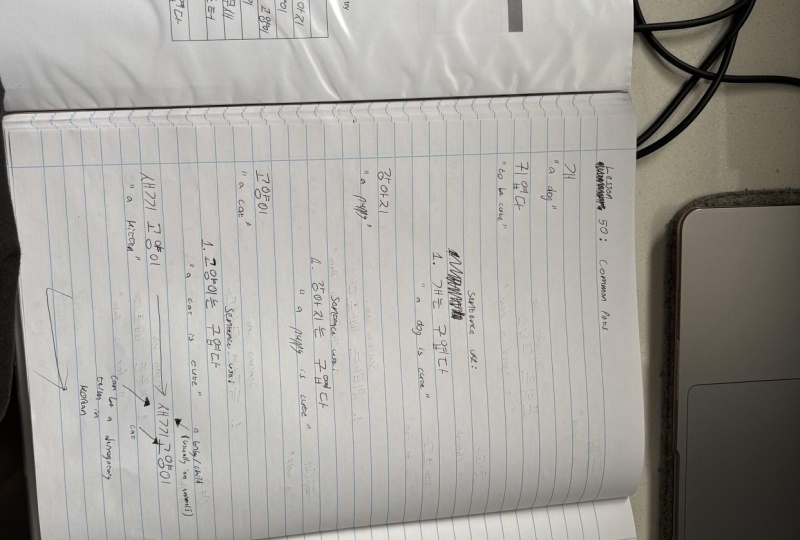 Lesson 50: Common Pets
개
"a dog"
귀엽다
"to be cute"
sentence use:
1. 개는 귀엽다
"a dog is cute"
강아지
"a puppy"
sentence use:
1. 강아지는 귀엽다
"a puppy is cute"
고양이
"a cat"
sentence use:
1. 고양이는 귀엽다
"a cat is cute"
새끼 고양이
"a kitten"
새끼고양이
a baby/child
(usually an animal)
cat
can be a derogatory
term in
Korean